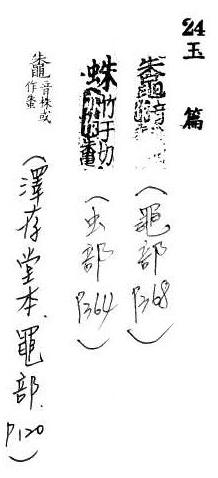 24 玉篇
鼄音株或作蛛（黽部 P368）
蛛竹于切（虫部 P364）
鼄音株或作蛛（澤存堂本、黽部、P120）